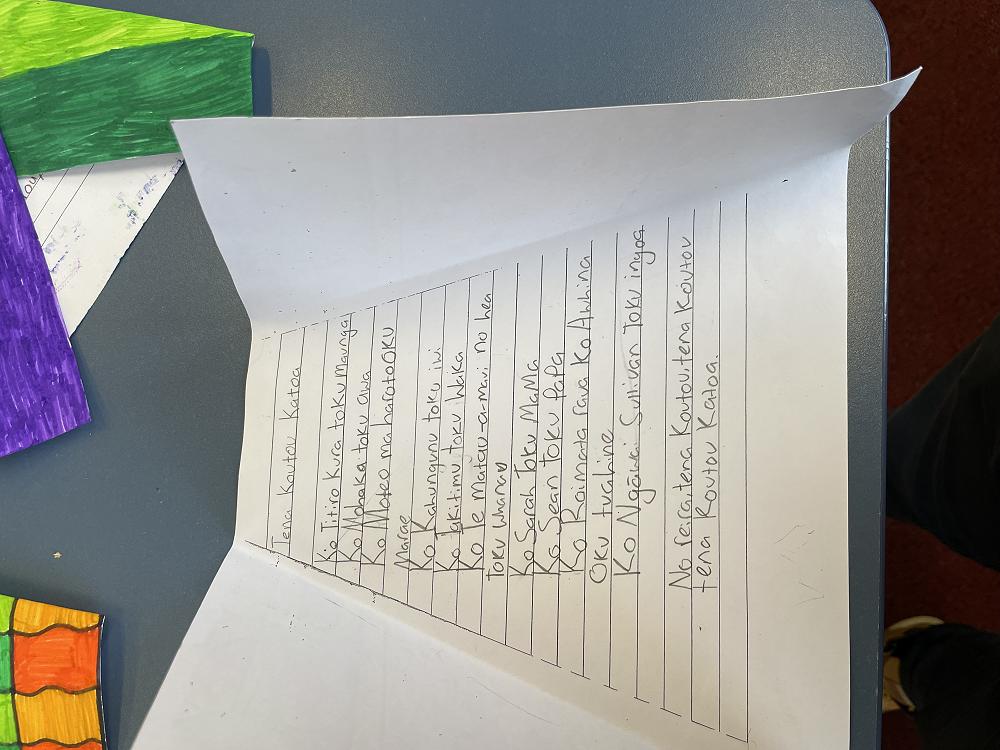 Tena Koutou Katoa
Ko Titiro Kura toku Maunga
Ko Mohaka toku awa
Ko Mateo ma haroto OKU
Marae
Ko Kahungunu toku iwi
Ko Takitimu toku Waka
Ko Te Matau-a-maui no hea
toku whanau
Ko Sarah Toku MaMa
Ko Sean toku PaPa
Ko Roimata raua Ko Awhina
oku tuahine
Ko Ngāwai Sullivan Toku ingoa
No reira, tena Koutou, tena Koutou
tena Koutou Katoa.